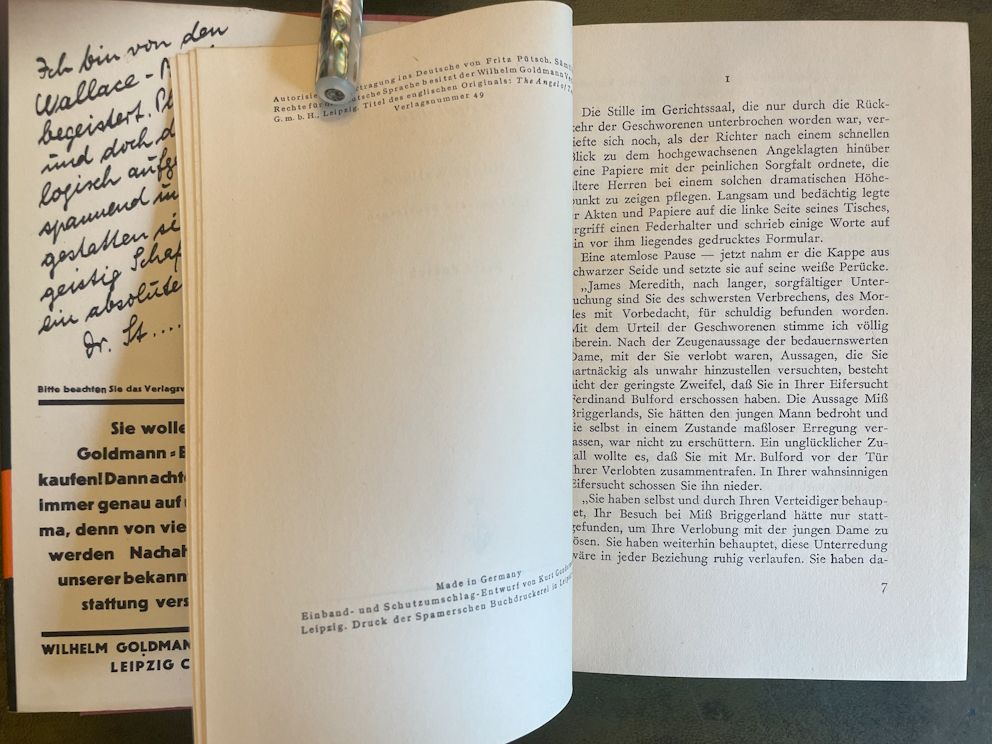 Ich bin von den
Wallace -
begeistert.
und doch
logisch
spannend
gestatten
geistig
ein
Dr. St....
Bitte beachten Sie das
Sie
Goldmann
kaufen! Dann
immer genau auf
ma, denn von
werden
unserer
stattung
WILHELM
LEIPZIG C
ins Deutsche von Fritz Pütsch.
Rechte Sprache besitzt der Wilhelm Goldmann
G. m. b. H., Leipzig. Titel des englischen Originals: The Angel of
Verlagsnummer 49
Made in Germany
Einband- und Schutzumschlag-Entwurf von Kurt
Leipzig. Druck der Spamerschen Buchdruckerei in
I
Die Stille im Gerichtssaal, die nur durch die Rück-
kehr der Geschworenen unterbrochen worden war, ver-
iefte sich noch, als der Richter nach einem schnellen
Blick zu dem hochgewachsenen Angeklagten hinüber
eine Papiere mit der peinlichen Sorgfalt ordnete, die
ältere Herren bei einem solchen dramatischen Höhe-
punkt zu zeigen pflegen. Langsam und bedächtig legte
r Akten und Papiere auf die linke Seite seines Tisches,
rgriff einen Federhalter und schrieb einige Worte auf
in vor ihm liegendes gedrucktes Formular.
Eine atemlose Pause — jetzt nahm er die Kappe aus
schwarzer Seide und setzte sie auf seine weiße Perücke.
„James Meredith, nach langer, sorgfältiger Unter-
uchung sind Sie des schwersten Verbrechens, des Mor-
des mit Vorbedacht, für schuldig befunden worden.
Mit dem Urteil der Geschworenen stimme ich völlig
überein. Nach der Zeugenaussage der bedauernswerten
Dame, mit der Sie verlobt waren, Aussagen, die Sie
artnäckig als unwahr hinzustellen versuchten, besteht
nicht der geringste Zweifel, daß Sie in Ihrer Eifersucht
Ferdinand Bulford erschossen haben. Die Aussage Miß
Briggerlands, Sie hätten den jungen Mann bedroht und
ie selbst in einem Zustande maßloser Erregung ver-
assen, war nicht zu erschüttern. Ein unglücklicher Zu-
all wollte es, daß Sie mit Mr. Bulford vor der Tür
Ihrer Verlobten zusammentrafen. In Ihrer wahnsinnigen
Eifersucht schossen Sie ihn nieder.
„Sie haben selbst und durch Ihren Verteidiger behaup-
et, Ihr Besuch bei Miß Briggerland hätte nur statt-
gefunden, um Ihre Verlobung mit der jungen Dame zu
lösen. Sie haben weiterhin behauptet, diese Unterredung
wäre in jeder Beziehung ruhig verlaufen. Sie haben da-
7